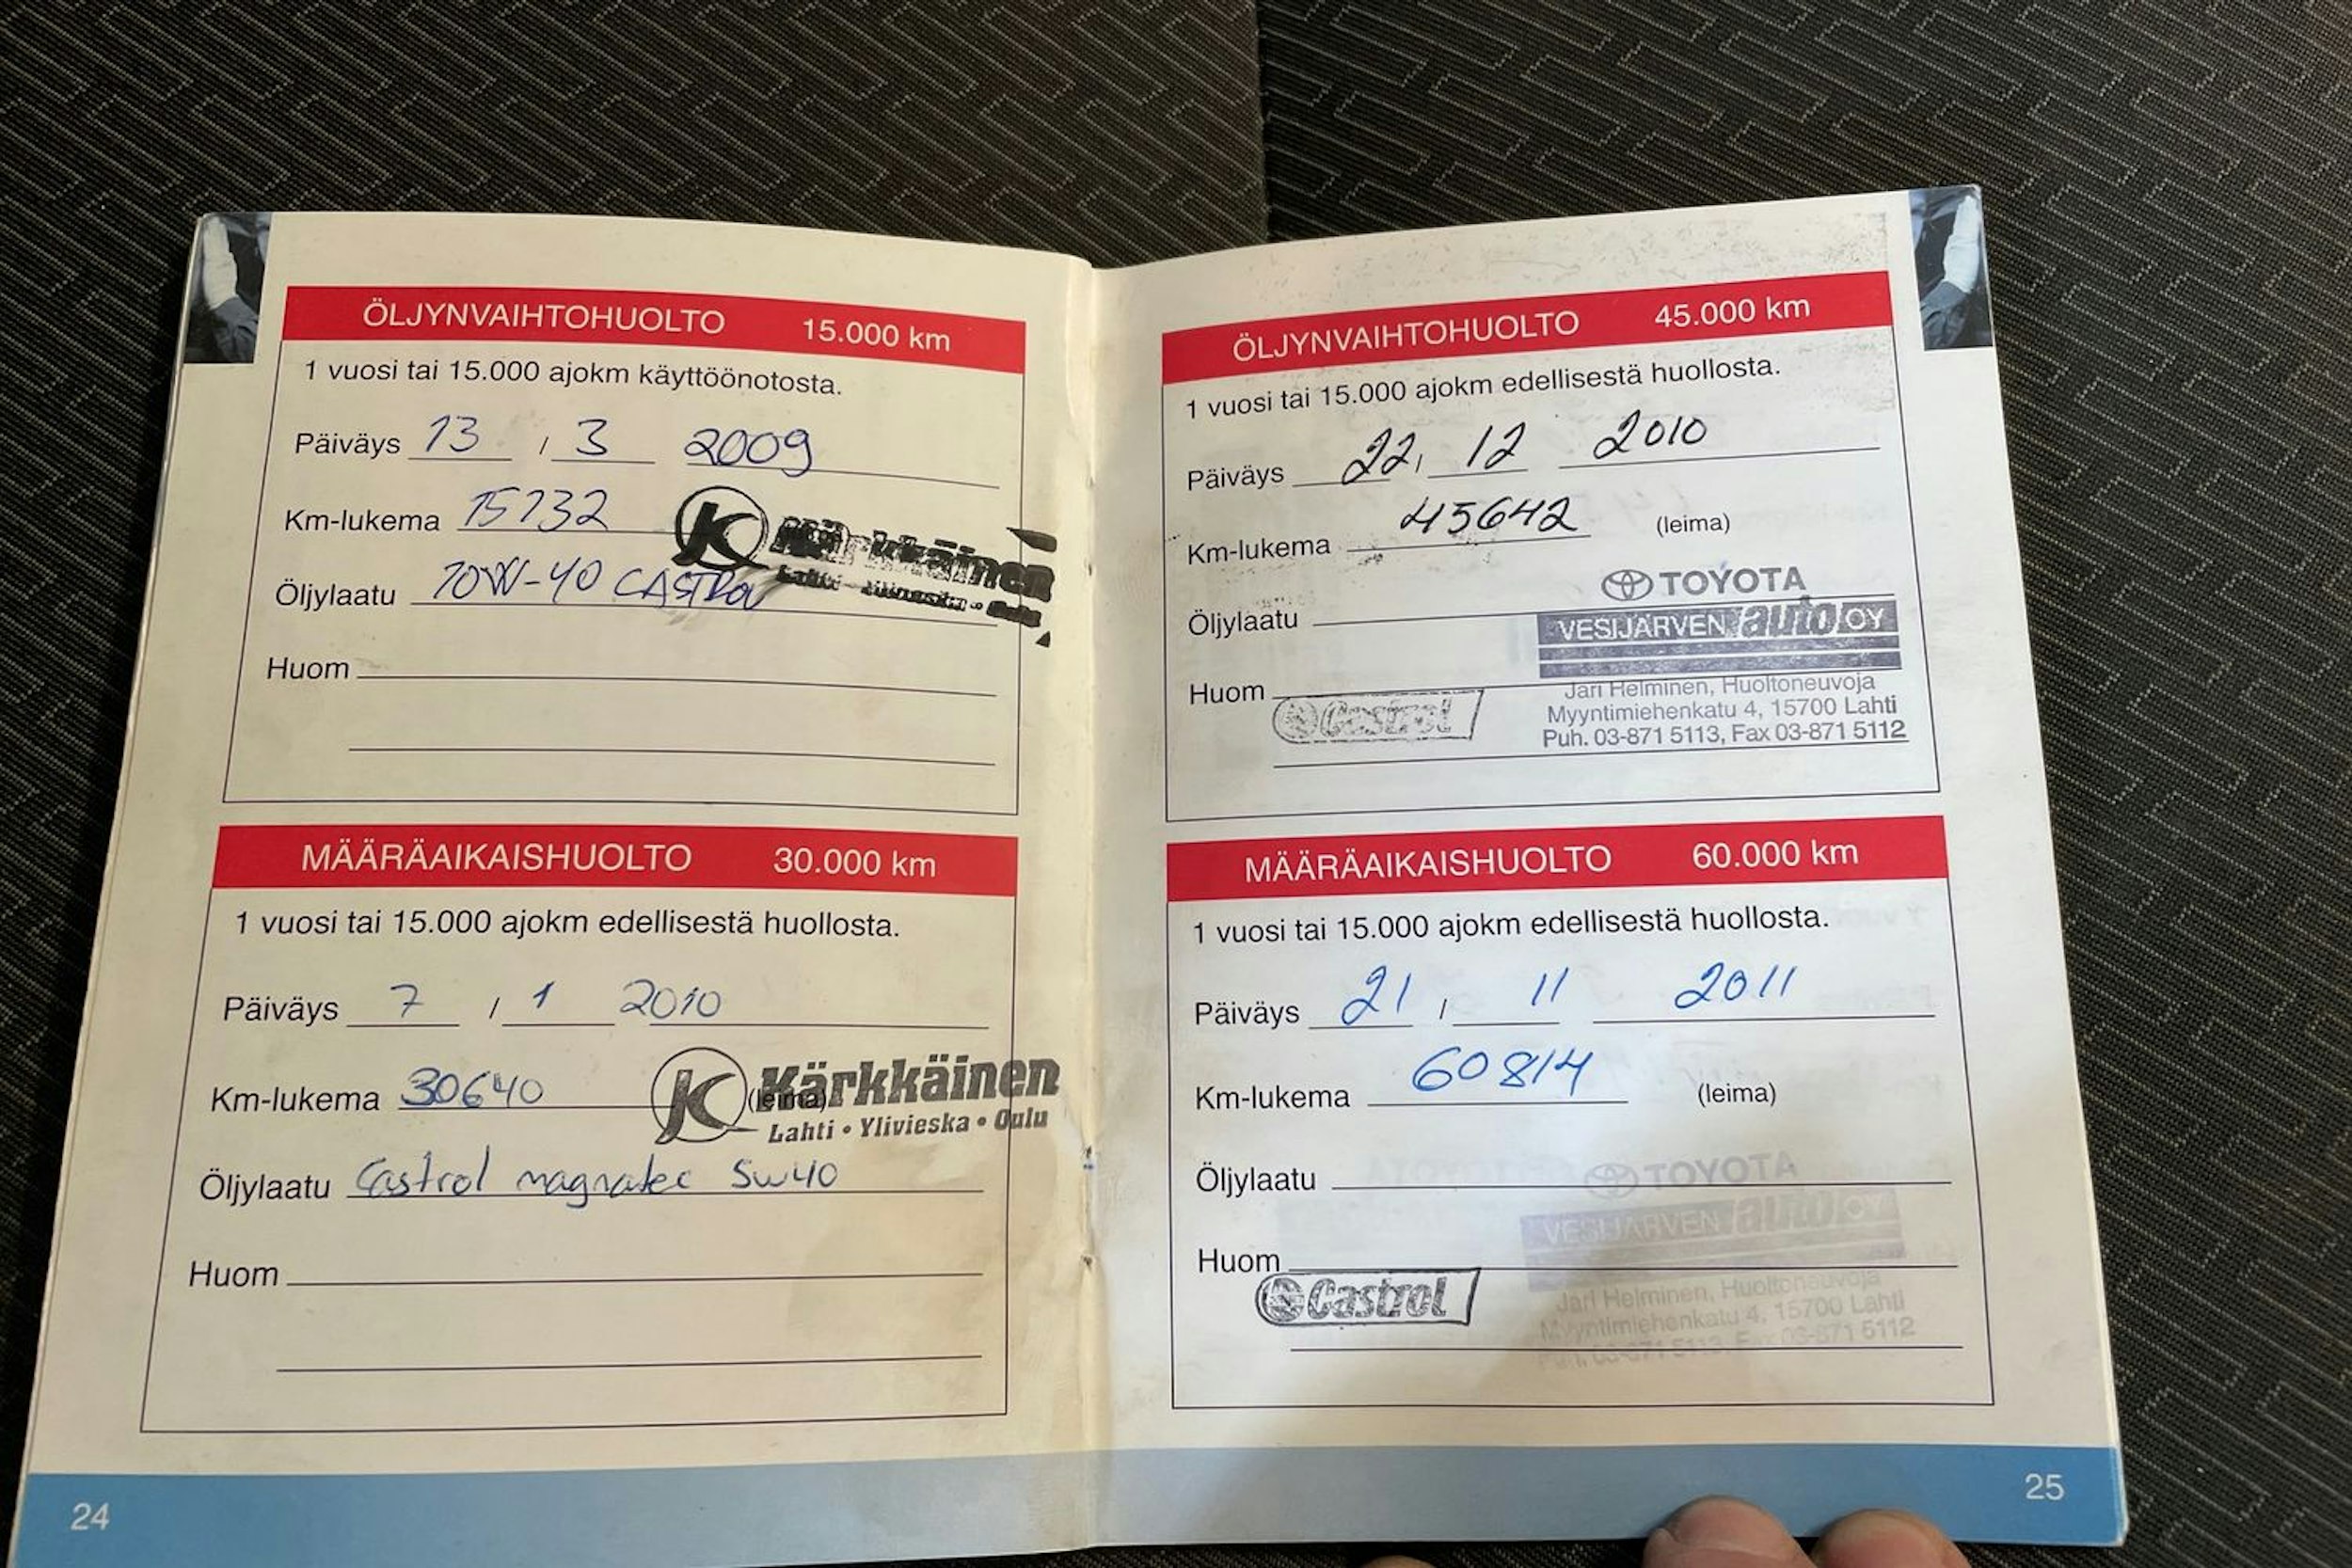 ÖLJYNVAIHTOHUOLTO 15.000 km
1 vuosi tai 15.000 ajokm käyttöönotosta.
Päiväys 13 / 3 2009
Km-lukema 15132
Kärkkäinen
Öljylaatu 10W-40 CASTROL
Huom
MÄÄRÄAIKAISHUOLTO 30.000 km
1 vuosi tai 15.000 ajokm edellisestä huollosta.
Päiväys 7 / 1 2010
Km-lukema 30640 (leima)
Kärkkäinen
Lahti • Ylivieska • Oulu
Öljylaatu Castrol magnatec 5w40
Huom
24
ÖLJYNVAIHTOHUOLTO 45.000 km
1 vuosi tai 15.000 ajokm edellisestä huollosta.
Päiväys 22, 12 2010
Km-lukema 45642 (leima)
TOYOTA
Öljylaatu
VESIJÄRVEN auto OY
Huom
Castrol
Jari Helminen, Huoltoneuvoja
Myyntimiehenkatu 4, 15700 Lahti
Puh. 03-871 5113, Fax 03-871 5112
MÄÄRÄAIKAISHUOLTO 60.000 km
1 vuosi tai 15.000 ajokm edellisestä huollosta.
Päiväys 21 / 11 2011
Km-lukema 60814 (leima)
Öljylaatu
TOYOTA
VESIJÄRVEN auto OY
Huom
Castrol
Jari Helminen, Huoltoneuvoja
Myyntimiehenkatu 4, 15700 Lahti
Puh. 03-871 5113, Fax 03-871 5112
25